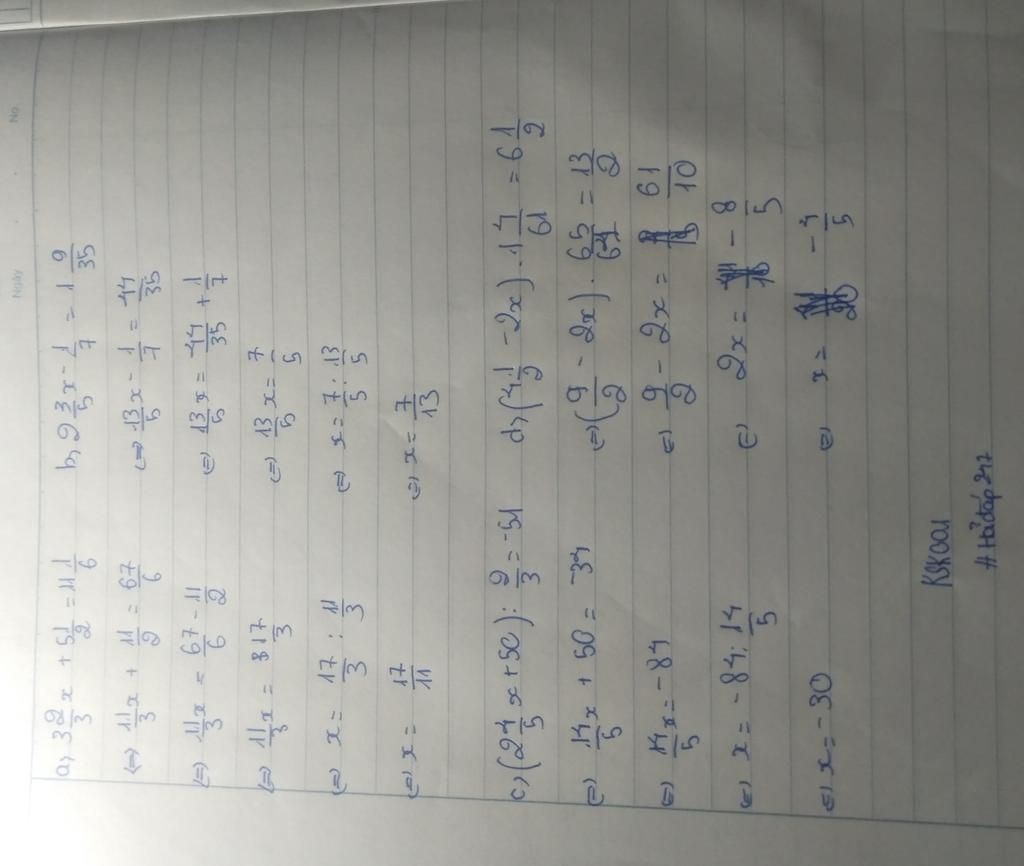 Ngày No.
a, 3 2/3 x + 5 1/2 = 11 1/6
(=) 11/3 x + 11/2 = 67/6
(=) 11/3 x = 67/6 - 11/2
(=) 11/3 x = 17/3
(=) x = 17/3 : 11/3
(=) x = 17/11
b, 2 3/5 x - 1/7 = 1 9/35
(=) 13/5 x - 1/7 = 44/35
(=) 13/5 x = 44/35 + 1/7
(=) 13/5 x = 7/5
(=) x = 7/5 : 13/5
(=) x = 7/13
c, (2 4/5 x + 50) : 2/3 = -51
(=) 14/5 x + 50 = -34
(=) 14/5 x = -84
(=) x = -84 : 14/5
(=) x = -30
d, (4 1/2 - 2x) . 1 4/61 = 6 1/2
(=) (9/2 - 2x) . 65/61 = 13/2
(=) 9/2 - 2x = 61/10
(=) 2x = -8/5
(=) x = -4/5
#Hỏiđáp247